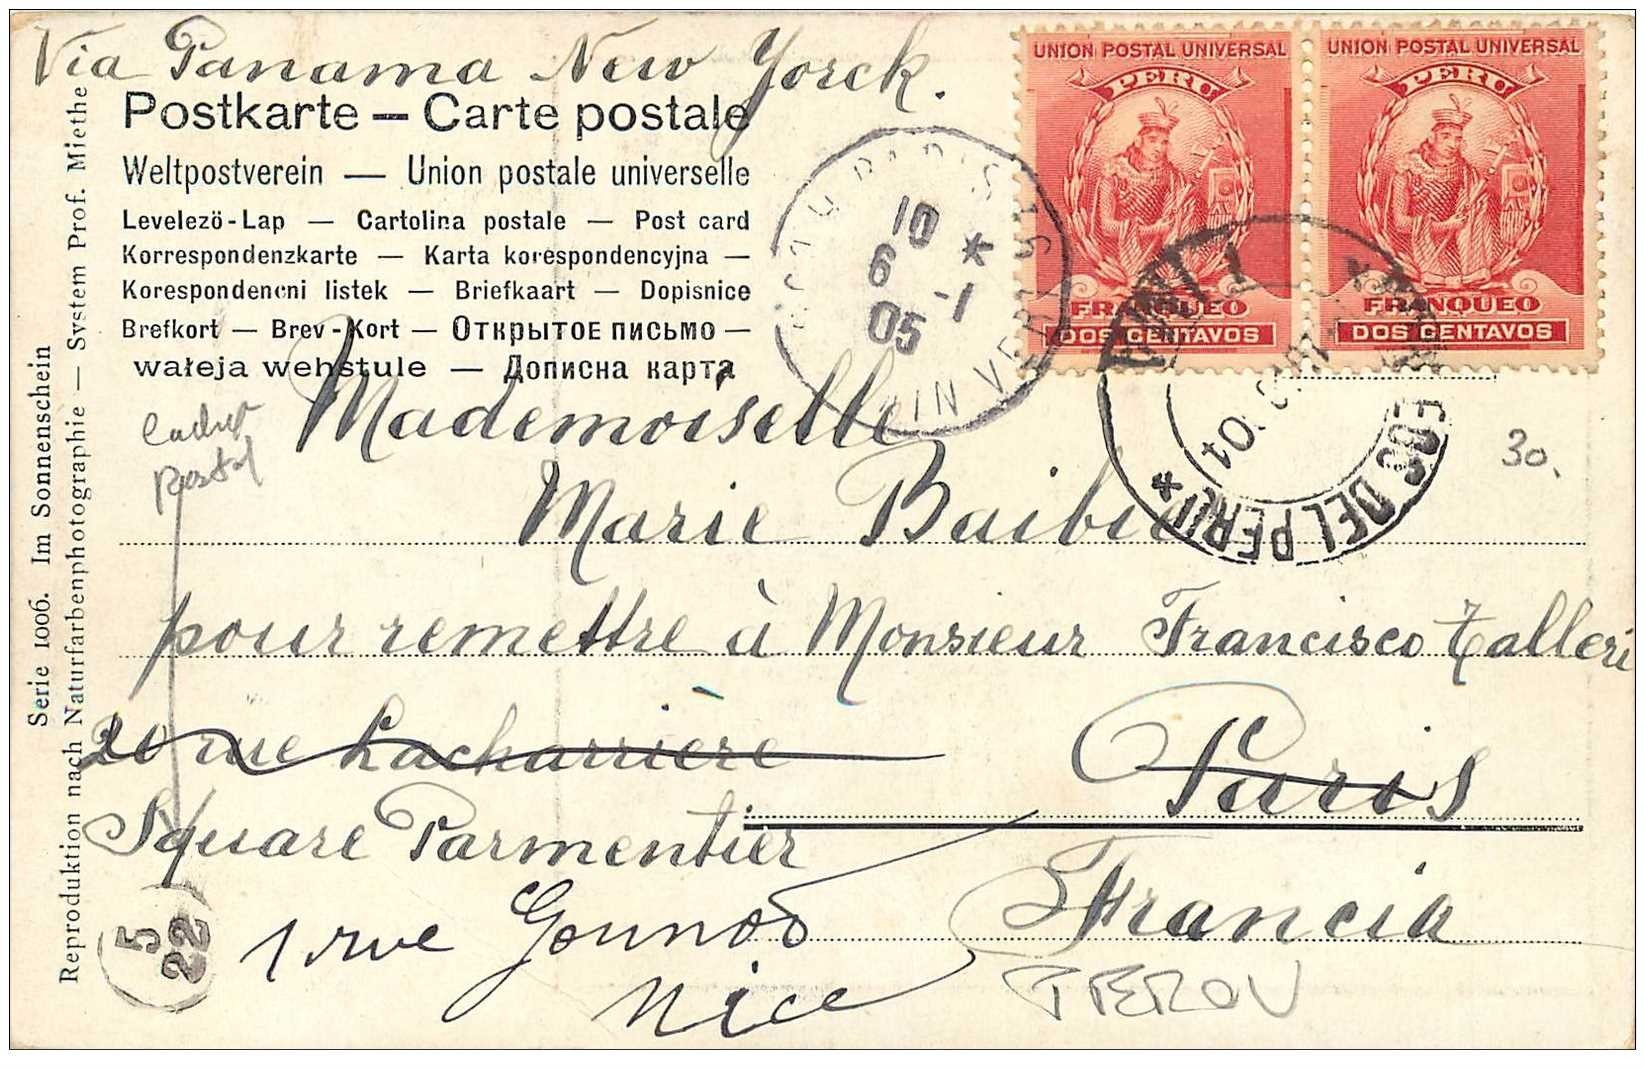 Via Panama New Yorck.
UNION POSTAL UNIVERSAL
PERU
FRANQUEO
DOS CENTAVOS
UNION POSTAL UNIVERSAL
PERU
FRANQUEO
DOS CENTAVOS
Postkarte — Carte postale
Weltpostverein — Union postale universelle
Levelezö-Lap — Cartolina postale — Post card
Korrespondenzkarte — Karta korespondencyjna —
Korespondencni listek — Briefkaart — Dopisnice
Brefkort — Brev-Kort — Открытое письмо —
wałeja wehstule — Дописна карта
10
6 -1
05
DEL PERU
Mademoiselle
Marie
pour remettre à Monsieur Francisco Talleri
20 rue Lacharrière
Paris
Square Parmentier
Francia
1 rue Gounod
Nice
PEROU
30.
cachet
postal
5
22
Serie 1006. Im Sonnenschein
Reproduktion nach Naturfarbenphotographie — System Prof. Miethe